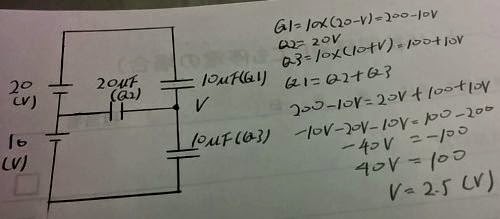 20
(V)
20μF
(Q2)
10μF(Q1)
V
10
(V)
10μF(Q3)
Q1=10×(20-V)=200-10V
Q2=20V
Q3=10×(10+V)=100+10V
Q1=Q2+Q3
200-10V=20V+100+10V
-10V-20V-10V=100-200
-40V=-100
40V=100
V=2.5(V)